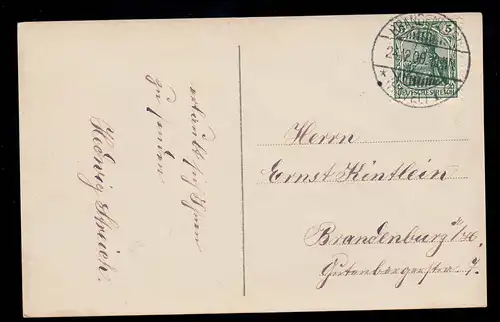 erlaubt sich Ihnen
zu senden
Hedwig Streich.
BRANDENBURG
24.12.09
5
DEUTSCHES REICH
Herrn
Ernst Kintlein
Brandenburg a/H.
Gutenbergerstr. 7.